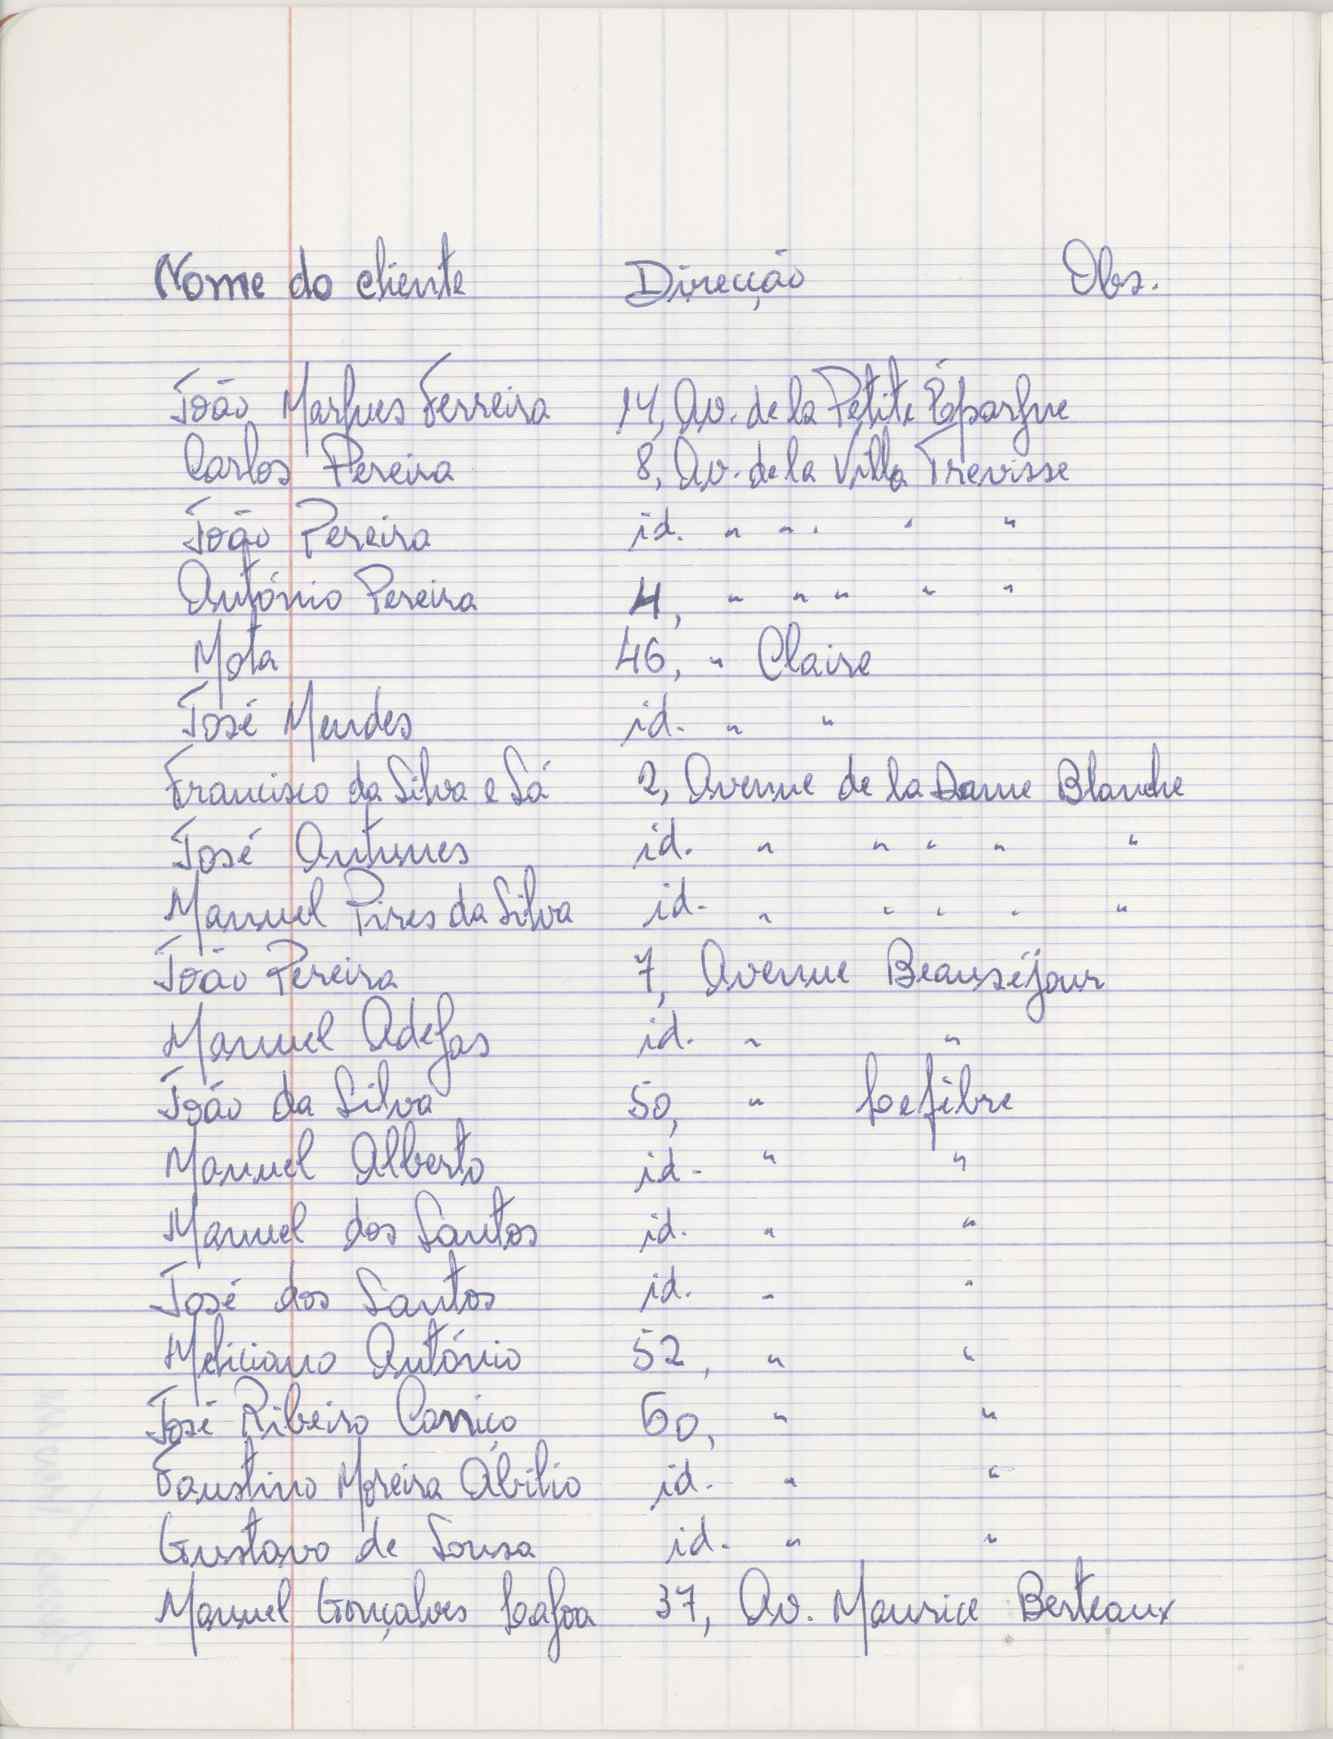 Nome do cliente Direcção Obs.
João Marques Ferreira 14, Av. de la Petite Épargne
Carlos Pereira 8, Av. de la Villa Trevisse
João Pereira id. " " " " "
António Pereira 4, " " " " "
Mota 46, " Claire
José Mendes id. " "
Francisco da Silva e Sá 2, Avenue de la Dame Blanche
José Antunes id. " " " " "
Manuel Pires da Silva id. " " " " "
João Pereira 7, Avenue Beauséjour
Manuel Adegas id. " "
João da Silva 50, " Lefibre
Manuel Alberto id. " "
Manuel dos Santos id. " "
José dos Santos id. " "
António 52, " "
José Ribeiro Carriço 60, " "
Faustino Moreira Abílio id. " "
Gustavo de Sousa id. " "
Manuel Gonçalves 37, Av. Maurice Berteaux